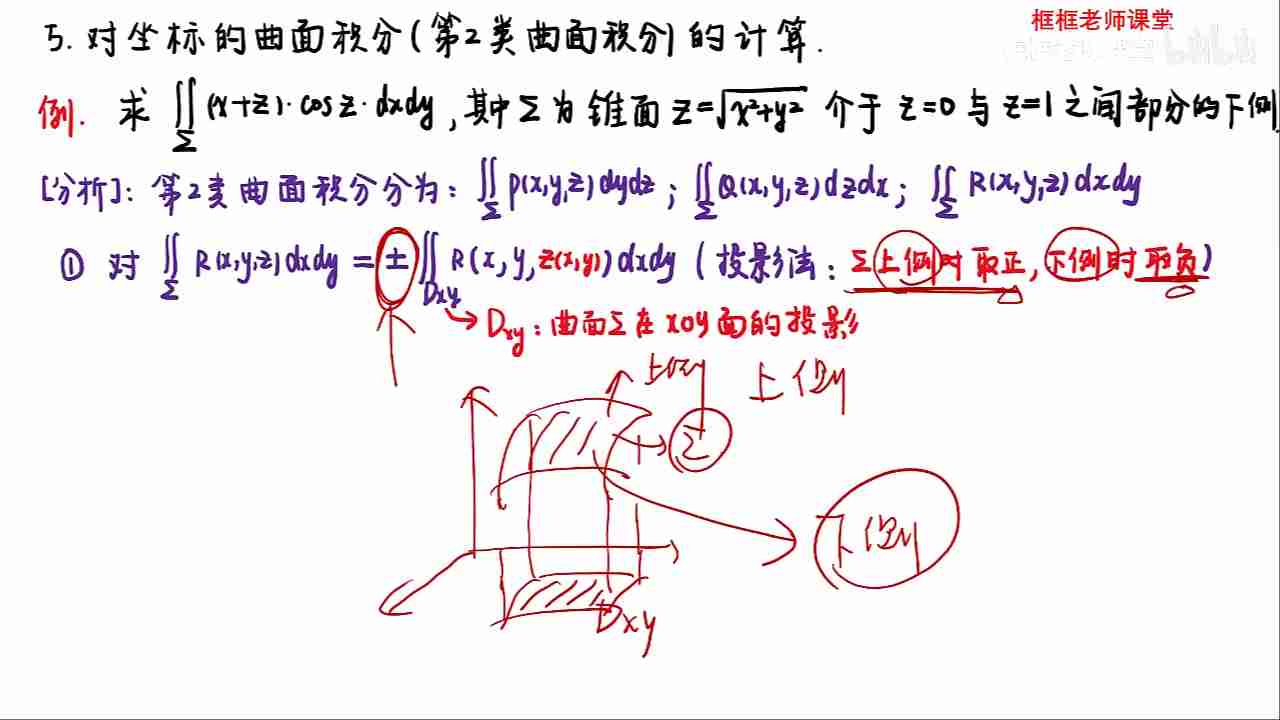 框框老师课堂
5. 对坐标的曲面积分(第2类曲面积分)的计算.
例. 求 ∬_Σ (x+z)·cosz·dxdy, 其中Σ为锥面 z=√(x²+y²) 介于 z=0 与 z=1 之间部分的下侧
[分析]: 第2类曲面积分分为: ∬_Σ P(x,y,z)dydz; ∬_Σ Q(x,y,z)dzdx; ∬_Σ R(x,y,z)dxdy
① 对 ∬_Σ R(x,y,z)dxdy = ± ∬_Dxy R(x,y,z(x,y))dxdy (投影法: Σ上侧时取正, 下侧时取负)
Dxy: 曲面Σ在xoy面的投影
上侧
上侧
Σ
下侧
Dxy